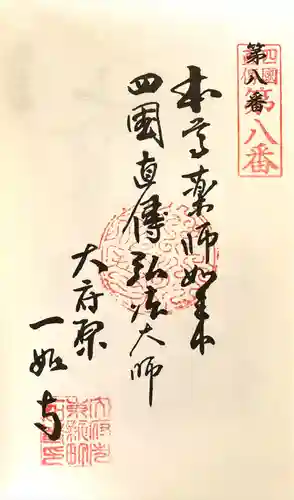 第八番
四國
第八番
本尊薬師如来
四国直傳弘法大師
大府
一
寺